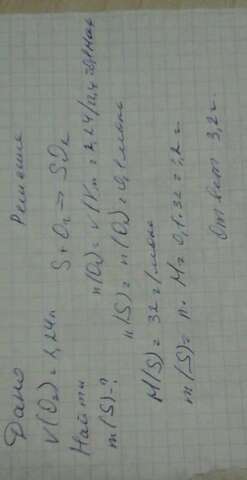 Дано
V(O₂)=2,24л
Найти
m(S)-?
Решение
S+O₂=>SO₂
n(O₂)=V/Vm=2,24/22,4=0,1моль
n(S)=n(O₂)=0,1моль
M(S)=32г/моль
m(S)=n·M=0,1·32=3,2г.
Ответ 3,2г